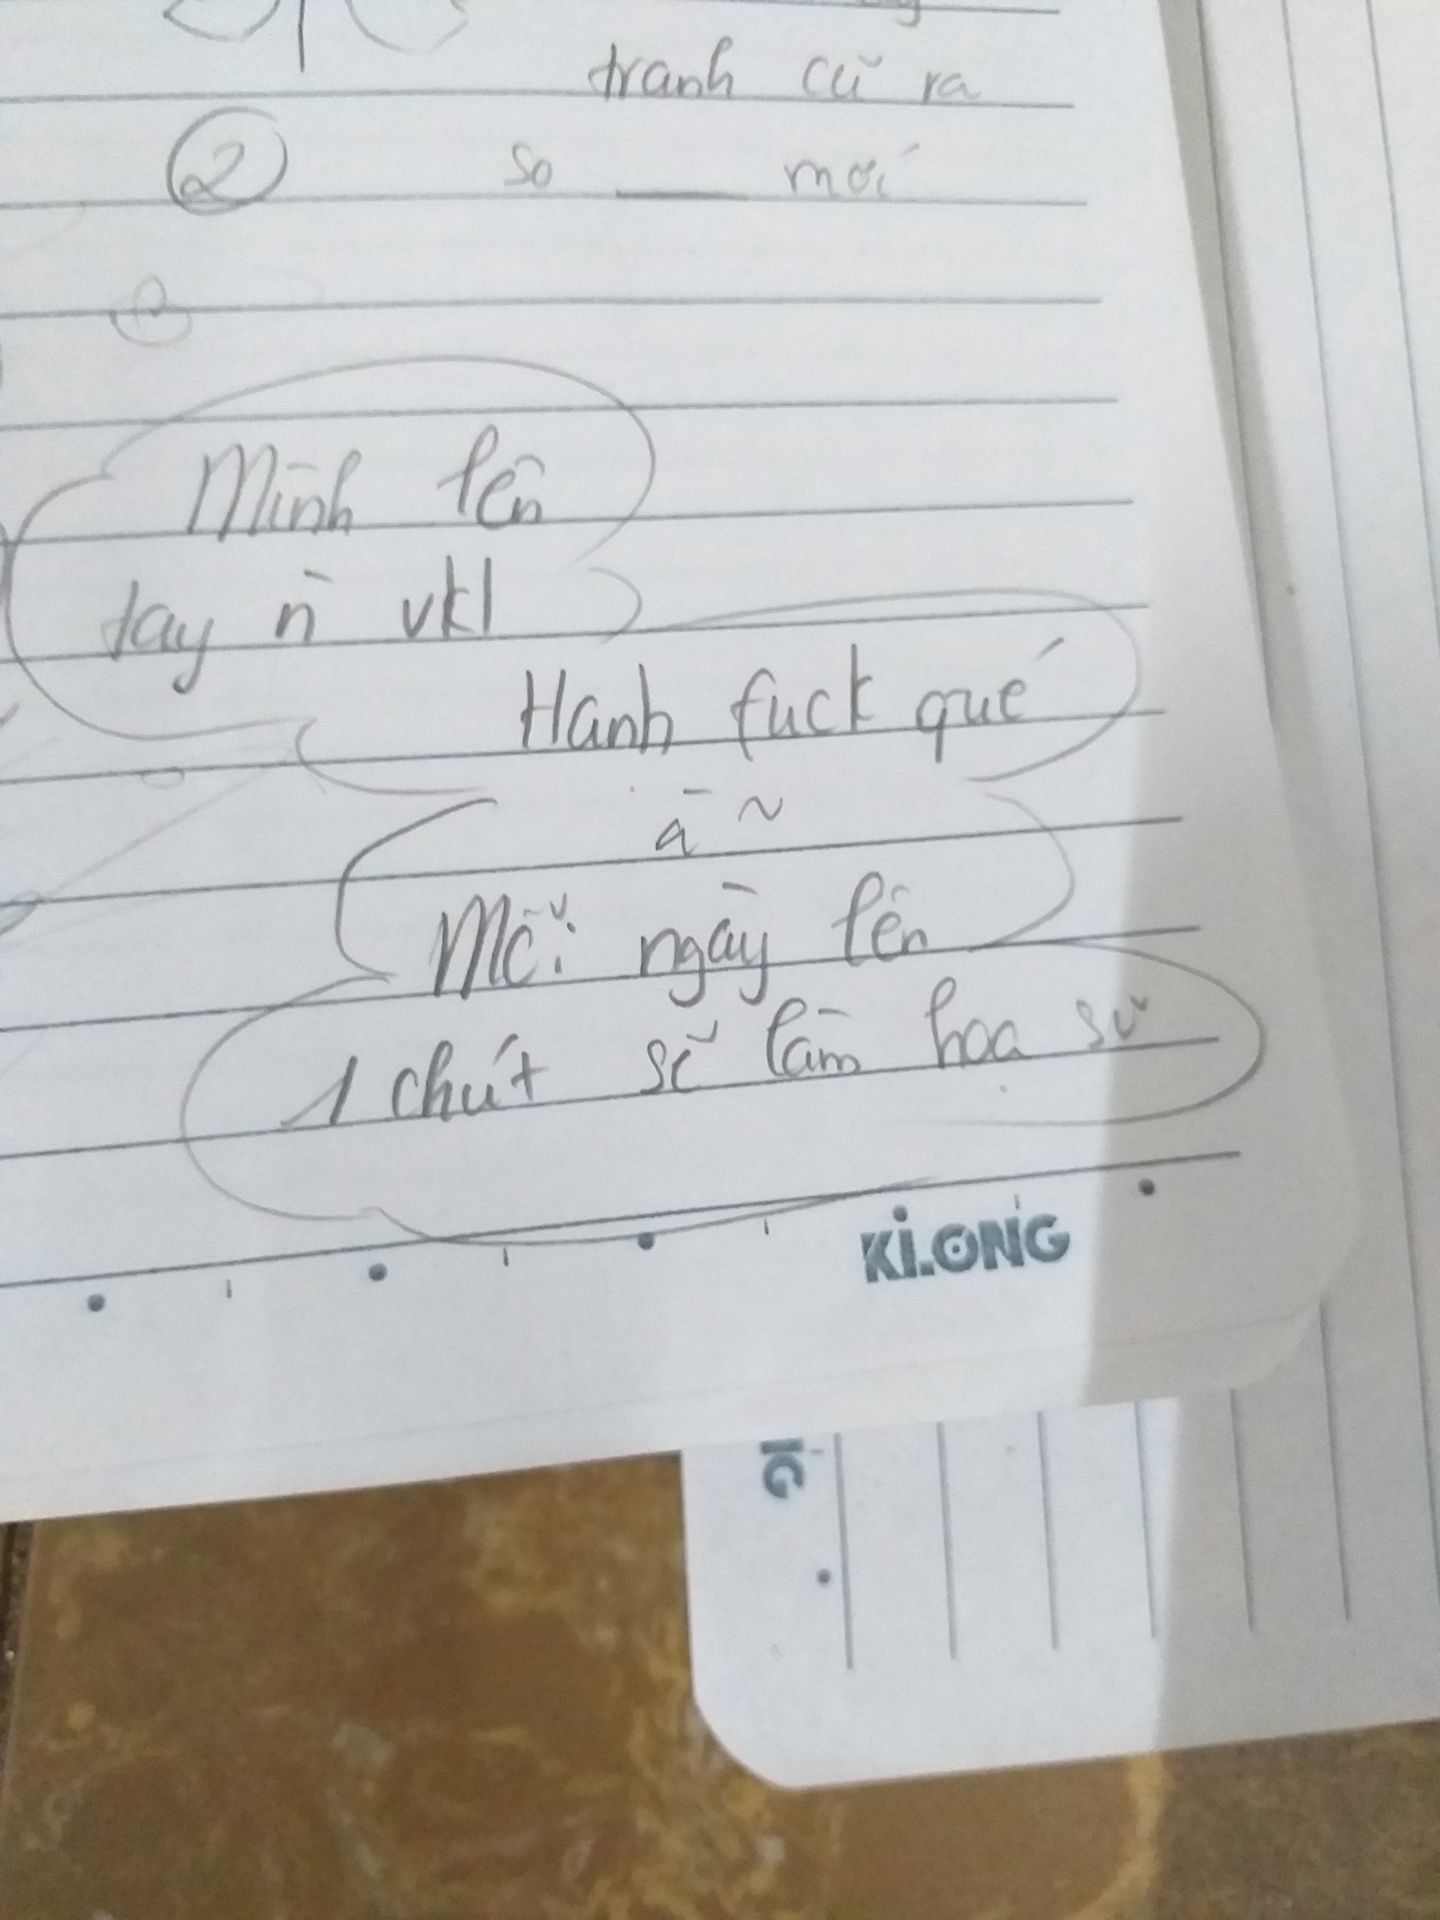 tranh cũ ra
② so ___ mới
Mình lên
tay n vkl
Hanh fuck qué
à ~
Mỗi ngày lên
1 chút sẽ làm hoa sư
KLONG
NG